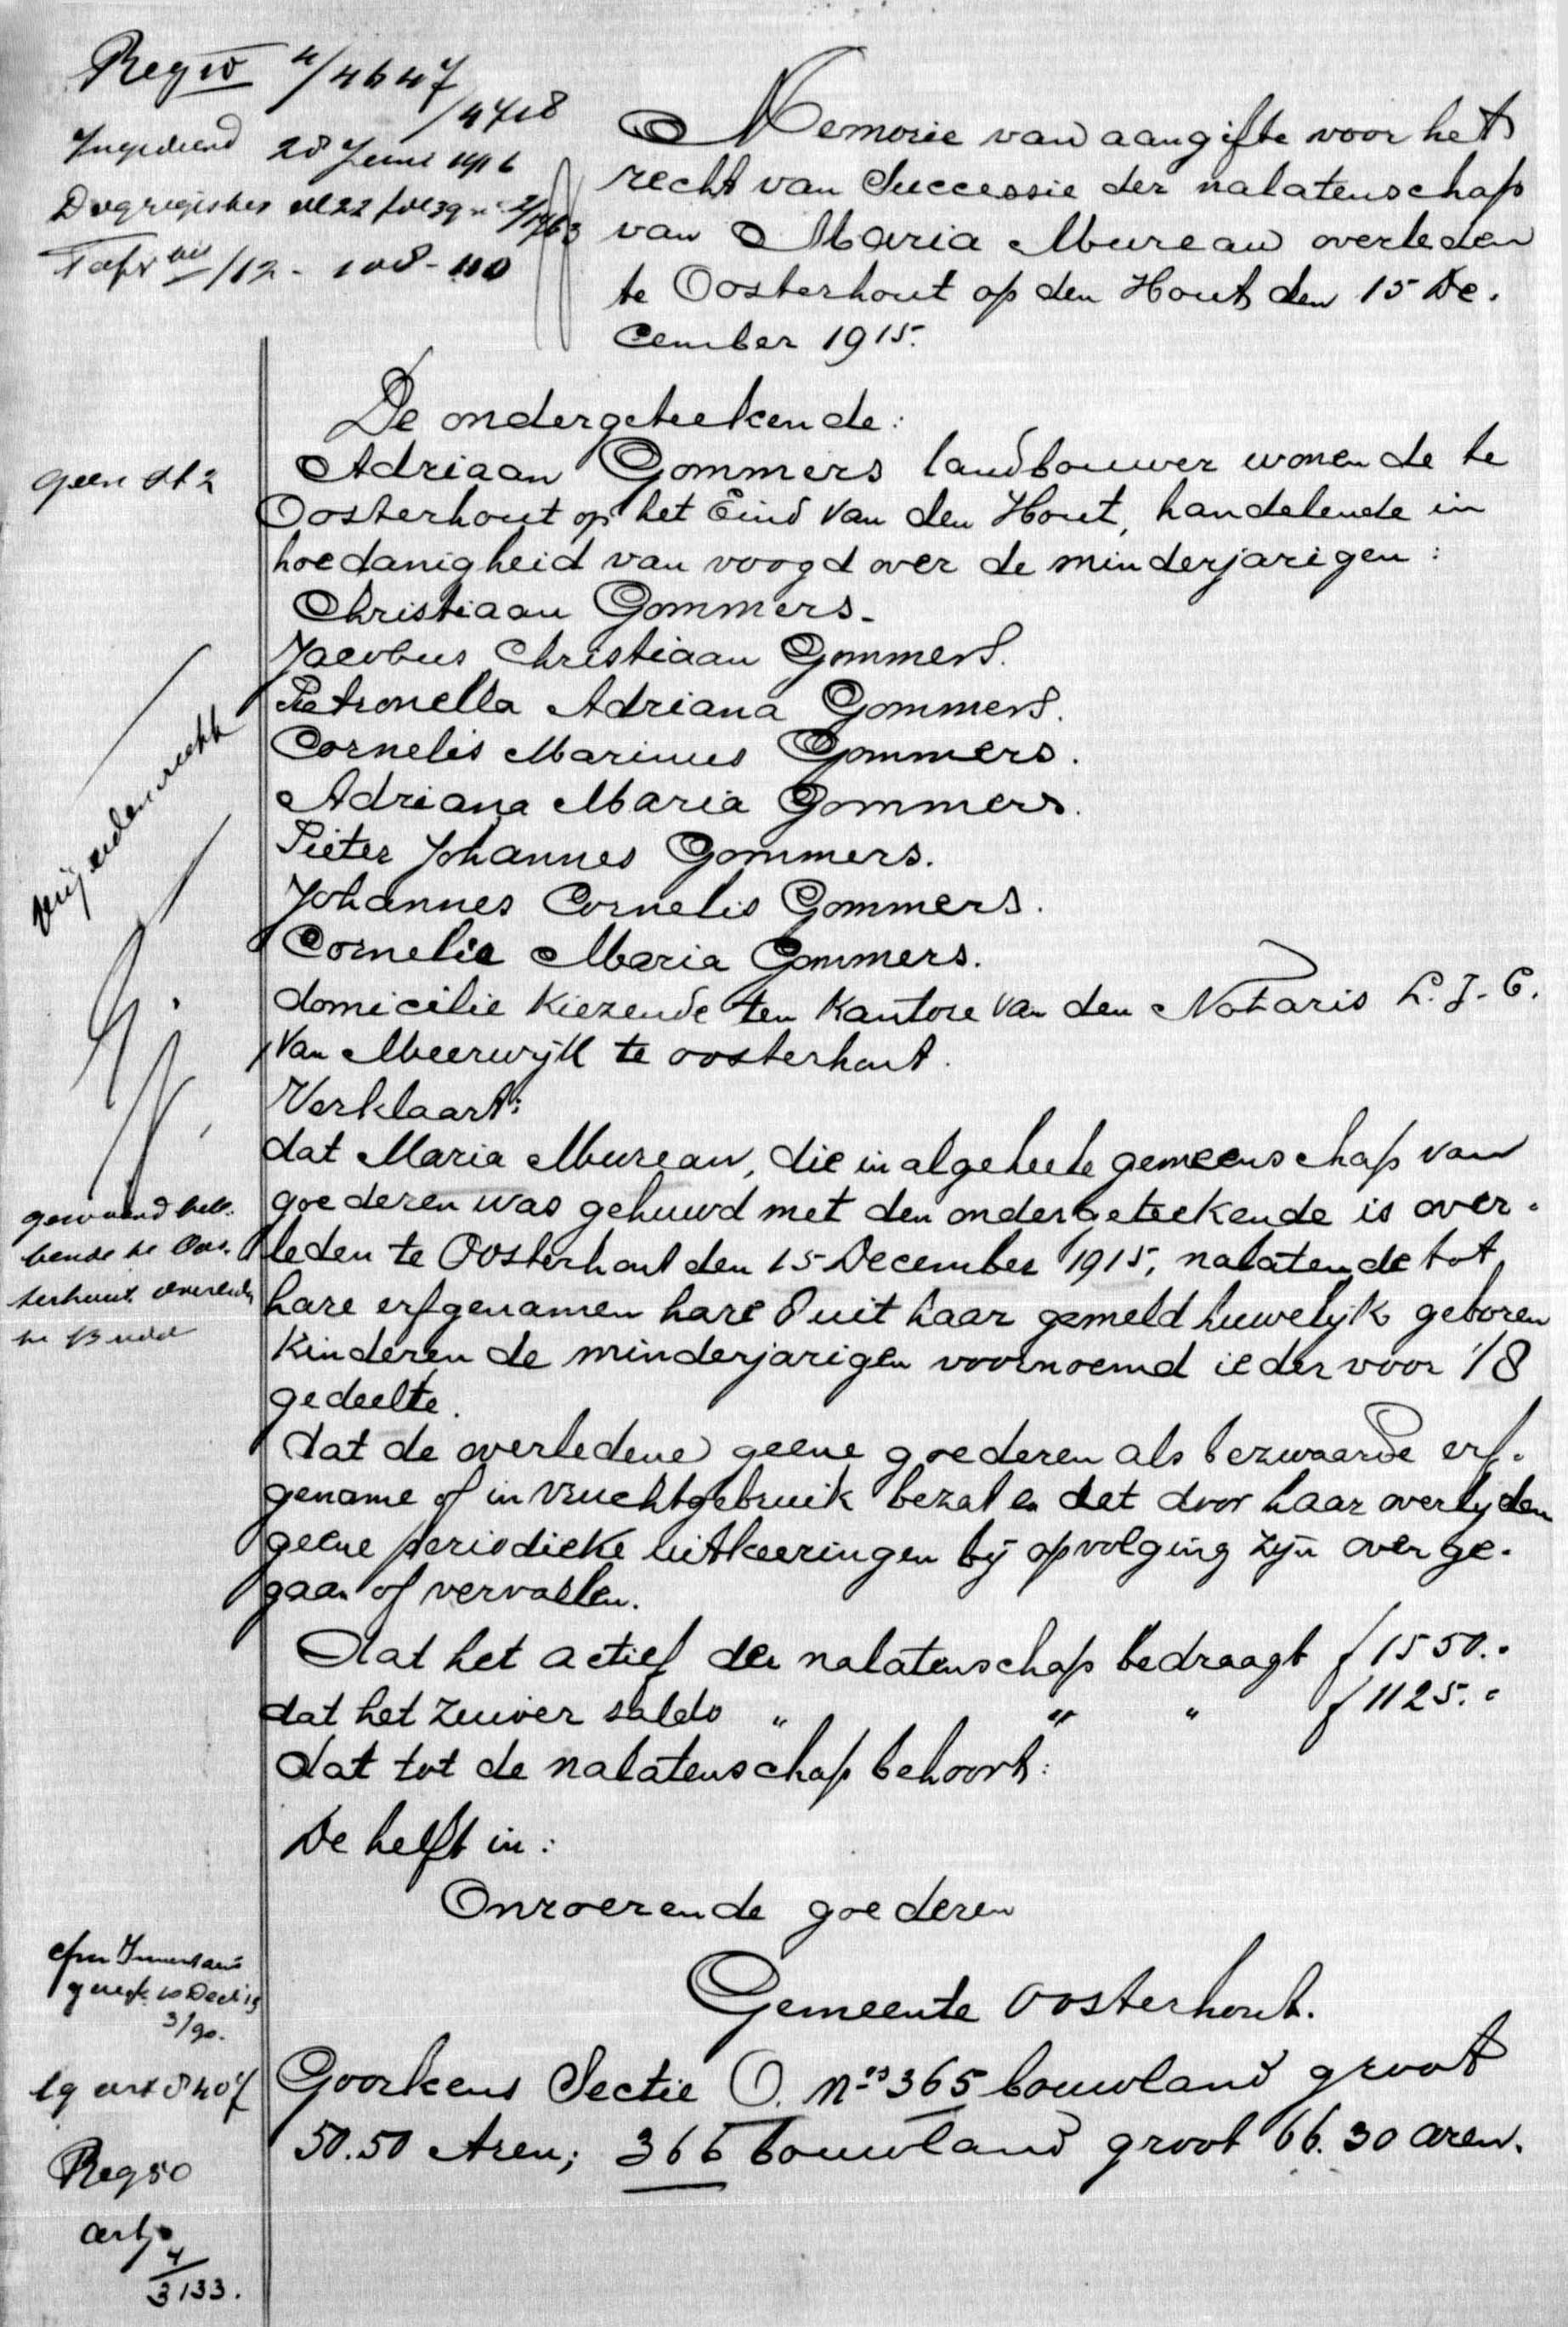 Reg 10 4/4647
/4718
Ingediend 28 Juni 1916
Dagregister dl 22 fol 39 n° 2/1763
Tafv VIII/12 - 108-110
Memorie van aangifte voor het
recht van Successie der nalatenschap
van Maria Mureau overleden
te Oosterhout op den Hout den 15 De-
cember 1915.
De ondergeteekende:
geen st 2
Adriaan Gommers landbouwer wonende te
Oosterhout op het Eind van den Hout, handelende in
hoedanigheid van voogd over de minderjarigen:
Christiaan Gommers.
Jacobus Christiaan Gommers.
Petronella Adriana Gommers.
Cornelis Marinus Gommers.
Adriana Maria Gommers.
Pieter Johannes Gommers.
Johannes Cornelis Gommers.
Cornelia Maria Gommers.
domicilie kiezende ten kantore van den Notaris L. J. C.
van Meerwijk te oosterhout.
Verklaart:
dat Maria Mureau, die in algeheele gemeenschap van
goederen was gehuwd met den ondergeteekende is over-
leden te Oosterhout den 15 December 1915, nalatende tot
hare erfgenamen hare 8 uit haar gemeld huwelijk geboren
kinderen de minderjarigen voornoemd ieder voor 1/8
gedeelte.
gewoond heb-
bende te Oos-
terhout overleden
te Breda
dat de overledene geene goederen als bezwaarde erf-
gename of in vruchtgebruik bezat en dat door haar overlijden
geene periodieke uitkeeringen bij opvolging zijn overge-
gaan of vervallen.
Dat het actief der nalatenschap bedraagt f 1550.-
dat het zuiver saldo " " " f 1125.-
dat tot de nalatenschap behoort:
De helft in:
Onroerende goederen
Gemeente Oosterhout.
3/90.
lg art 8407
Goorkens Sectie O. nos 365 bouwland groot
50.50 Aren; 366 bouwland groot 66.30 aren.
Reg 50
art
4
3133.